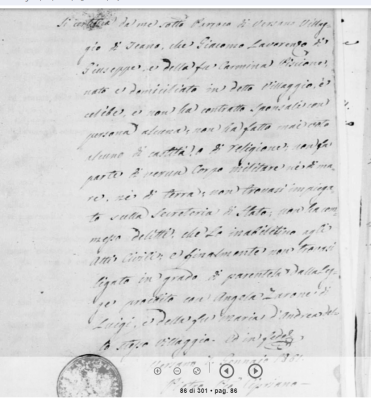 Si certifica da me sotto Parroco di Versano Villag-
gio di Teano, che Giacomo Lavorenzo di
Giuseppe, e della fu Carmina
nato e domiciliato in detto Villaggio, è
celibe, e non ha contratto sponsali con
persona alcuna, non ha fatto mai voto
alcuno di castità, o di religione, non fa
parte di verun Corpo militare nè di ma-
re, nè di terra, non trovasi impiega-
to sulla Secreteria di Stato, non ha com-
messo delitti, che lo inabilitino agli
Atti Civili, e finalmente non trovasi
ligato in grado di parentela dalla leg-
ge proibito con Angela Zarone di
Luigi, e della fu Maria d'Andrea del-
lo stesso Villaggio. Ed in fede
86 di 301 • pag. 86